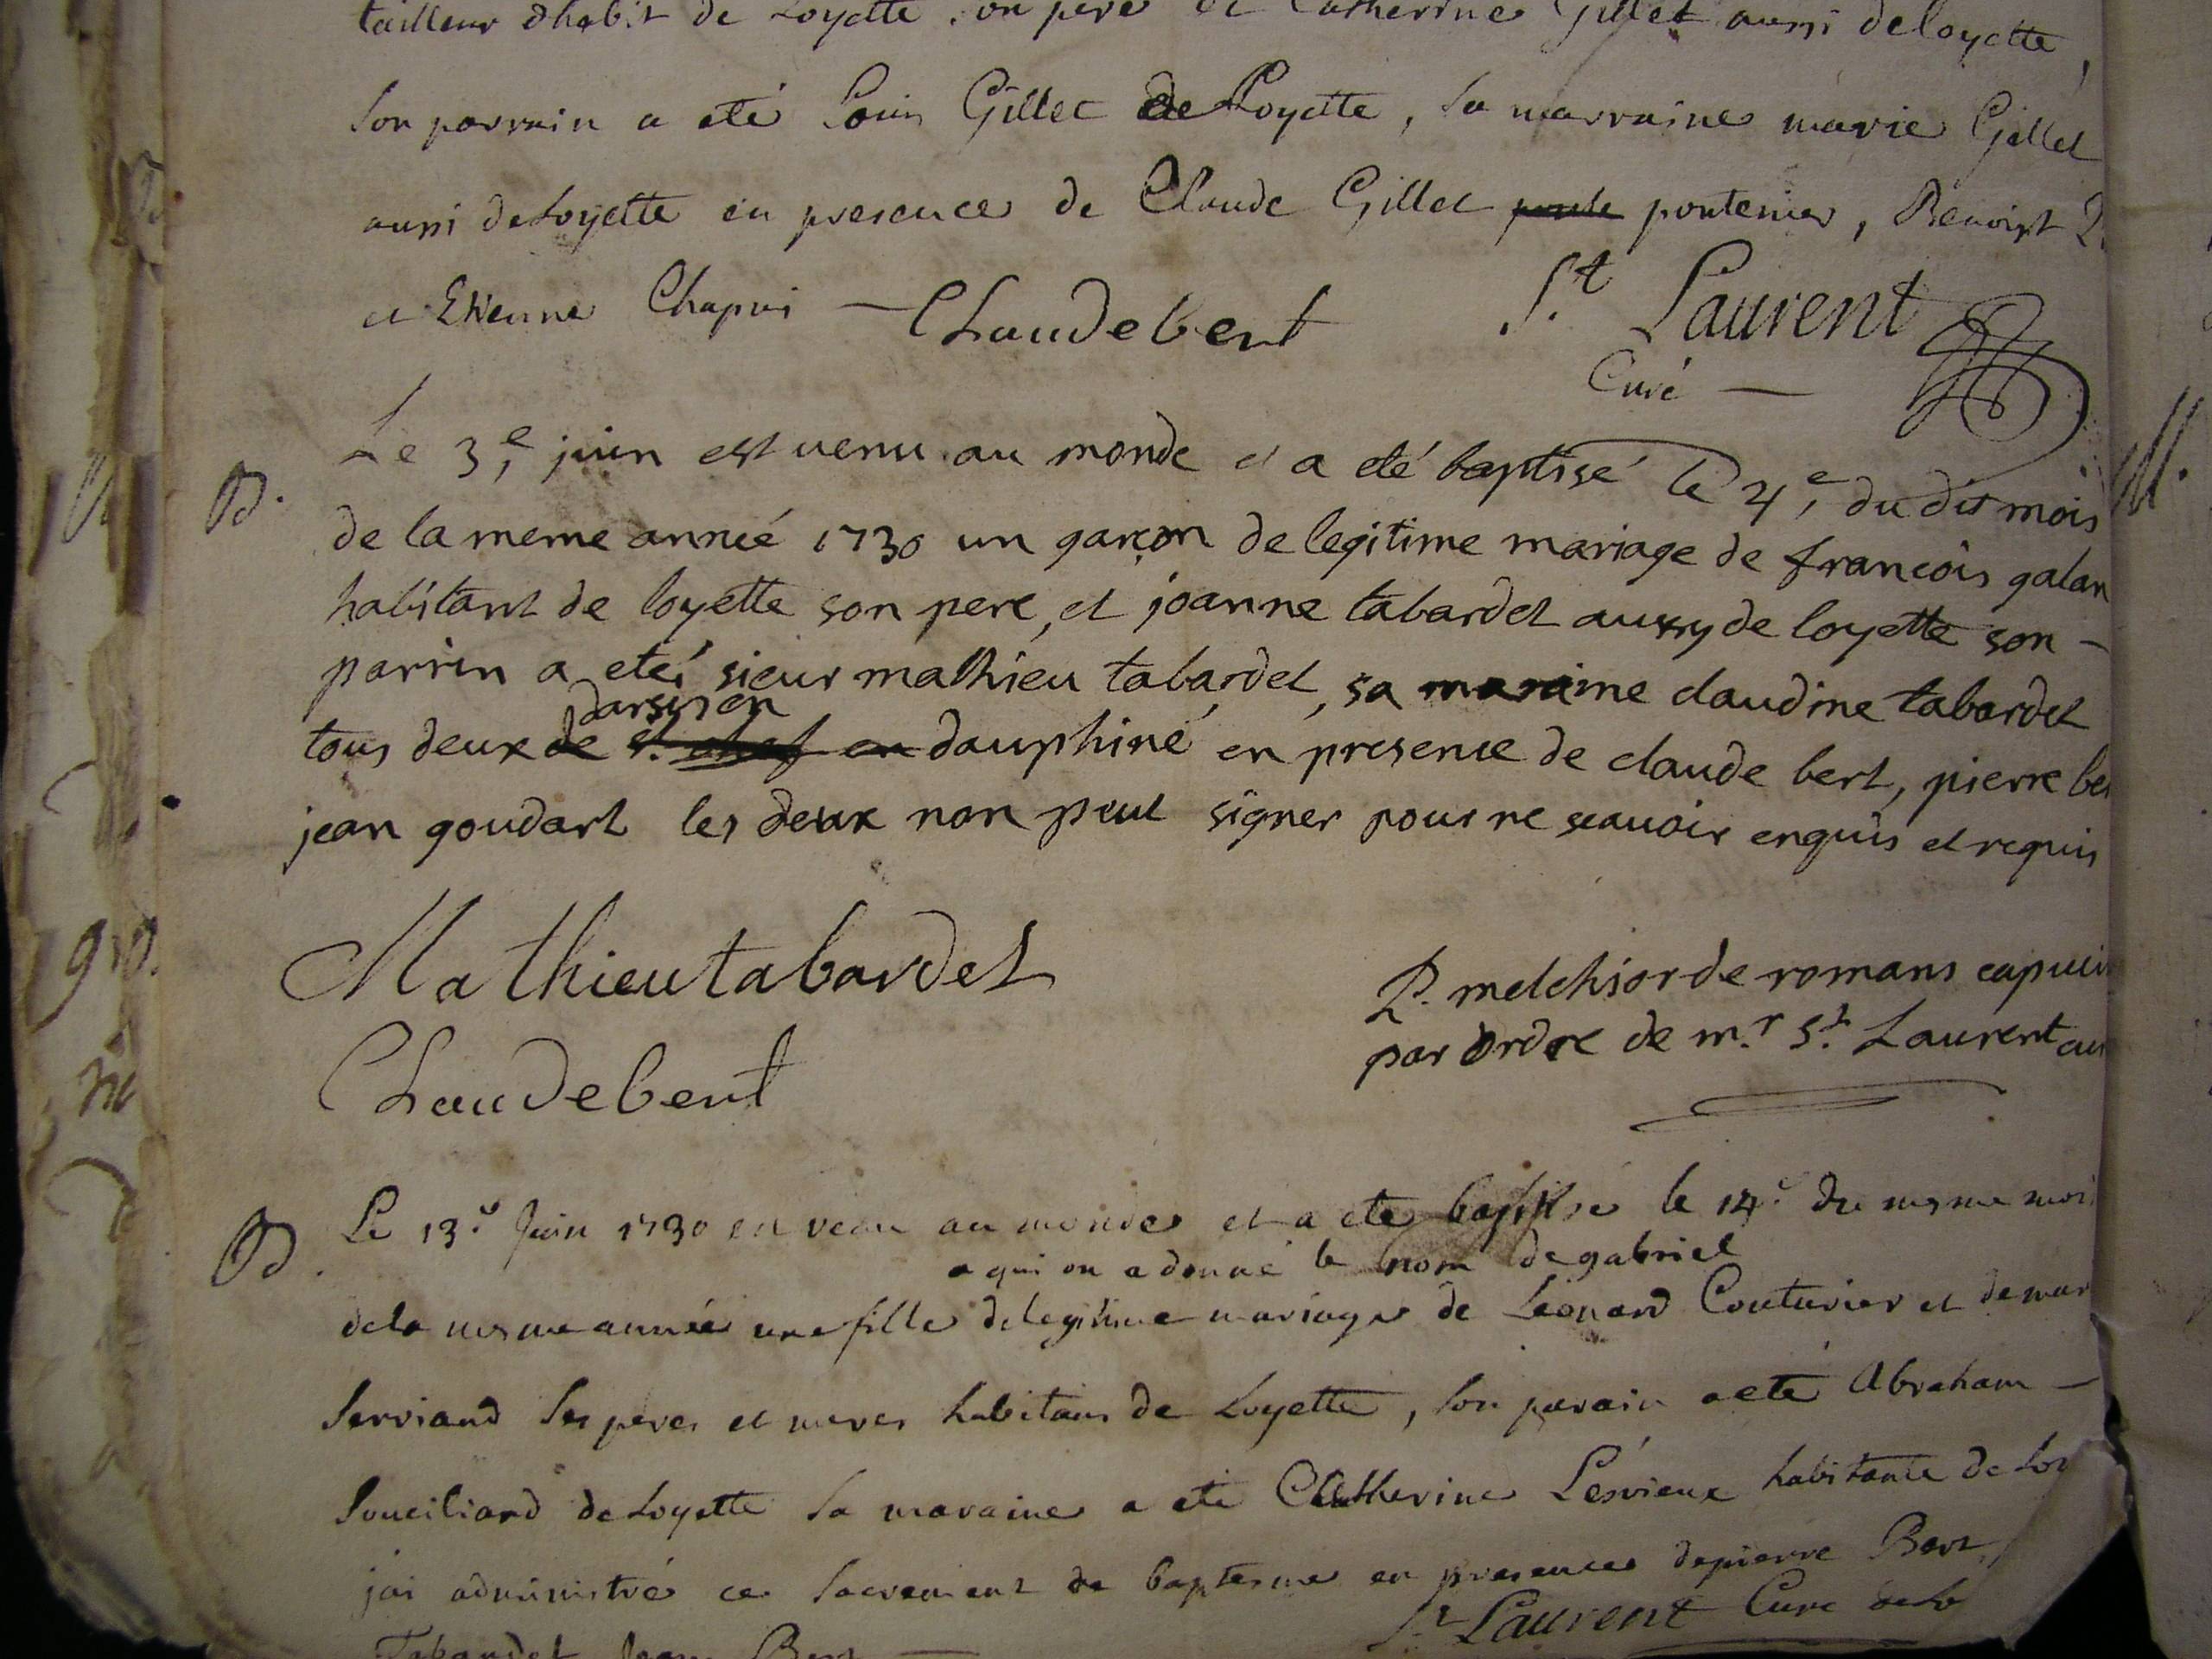 tailleur dhabit de Loyette son pere et Catherine Gillet aussi de loyette,
son parrain a eté Louis Gillet de Loyette, sa marraine marie Gillet
aussi de Loyette en presence de Claude Gillet pontenier, Benoist
et Etienne Chapui — Claude bert St Laurent
Curé —
B. Le 3e juin est venu au monde et a eté baptisé le 4e du dit mois
de la meme anneé 1730 un garçon de legitime mariage de francois galan
habitant de loyette son pere, et joanne tabardet aussy de loyette son —
parrin a eté sieur mathieu tabardet, sa maraine claudine tabardet
darsin en
tous deux de st. chef en dauphiné en presence de claude bert, pierre be
jean goudart les deux non peut signer pour ne scauoir enquis et requis
Mathieu tabardet
P. melchior de romans capucin
Claude bert
par ordre de mr. St. Laurent
B. Le 13e Juin 1730 est venu au monde et a ete baptisé le 14e du mesme moi
a qui on a donné le nom de gabriel
de la mesme anneé une fille de legitime mariage de Leonard Couturier et de mar
Serviand ses peres et meres habitans de Loyette, son parain a eté Abraham —
Souciliard de Loyette sa maraine a eté Catherine Lesvieux habitante de Loy
jai administré ce sacrement de baptesme en presence de pierre Bert
St Laurent Curé de Lo
Tabardet Jean Bert —